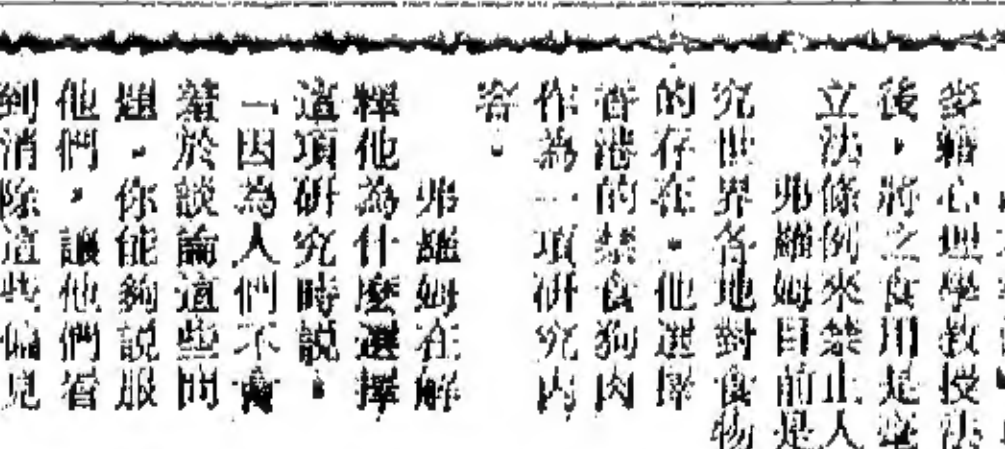 籍心理學教授
後，將之食用是
立法條例來禁止人
弗羅姆目前是
究世界各地對食物
的存在。他選擇
香港的禁食狗肉
作為一項研究內
容。
弗羅姆在解
釋他為什麼選擇
這項研究時說：
「因為人們不
羞於談論這些問
題。你能夠說服
他們，讓他們看
到消除這些偏見